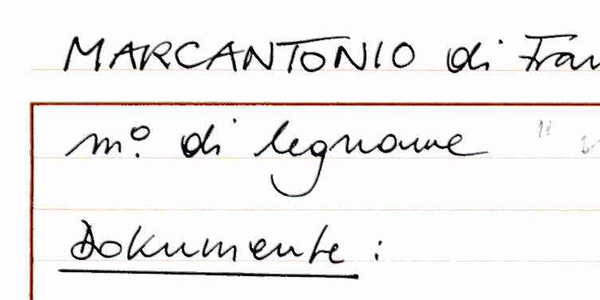 MARCANTONIO di Fran
m.º di legname
Dokumente :